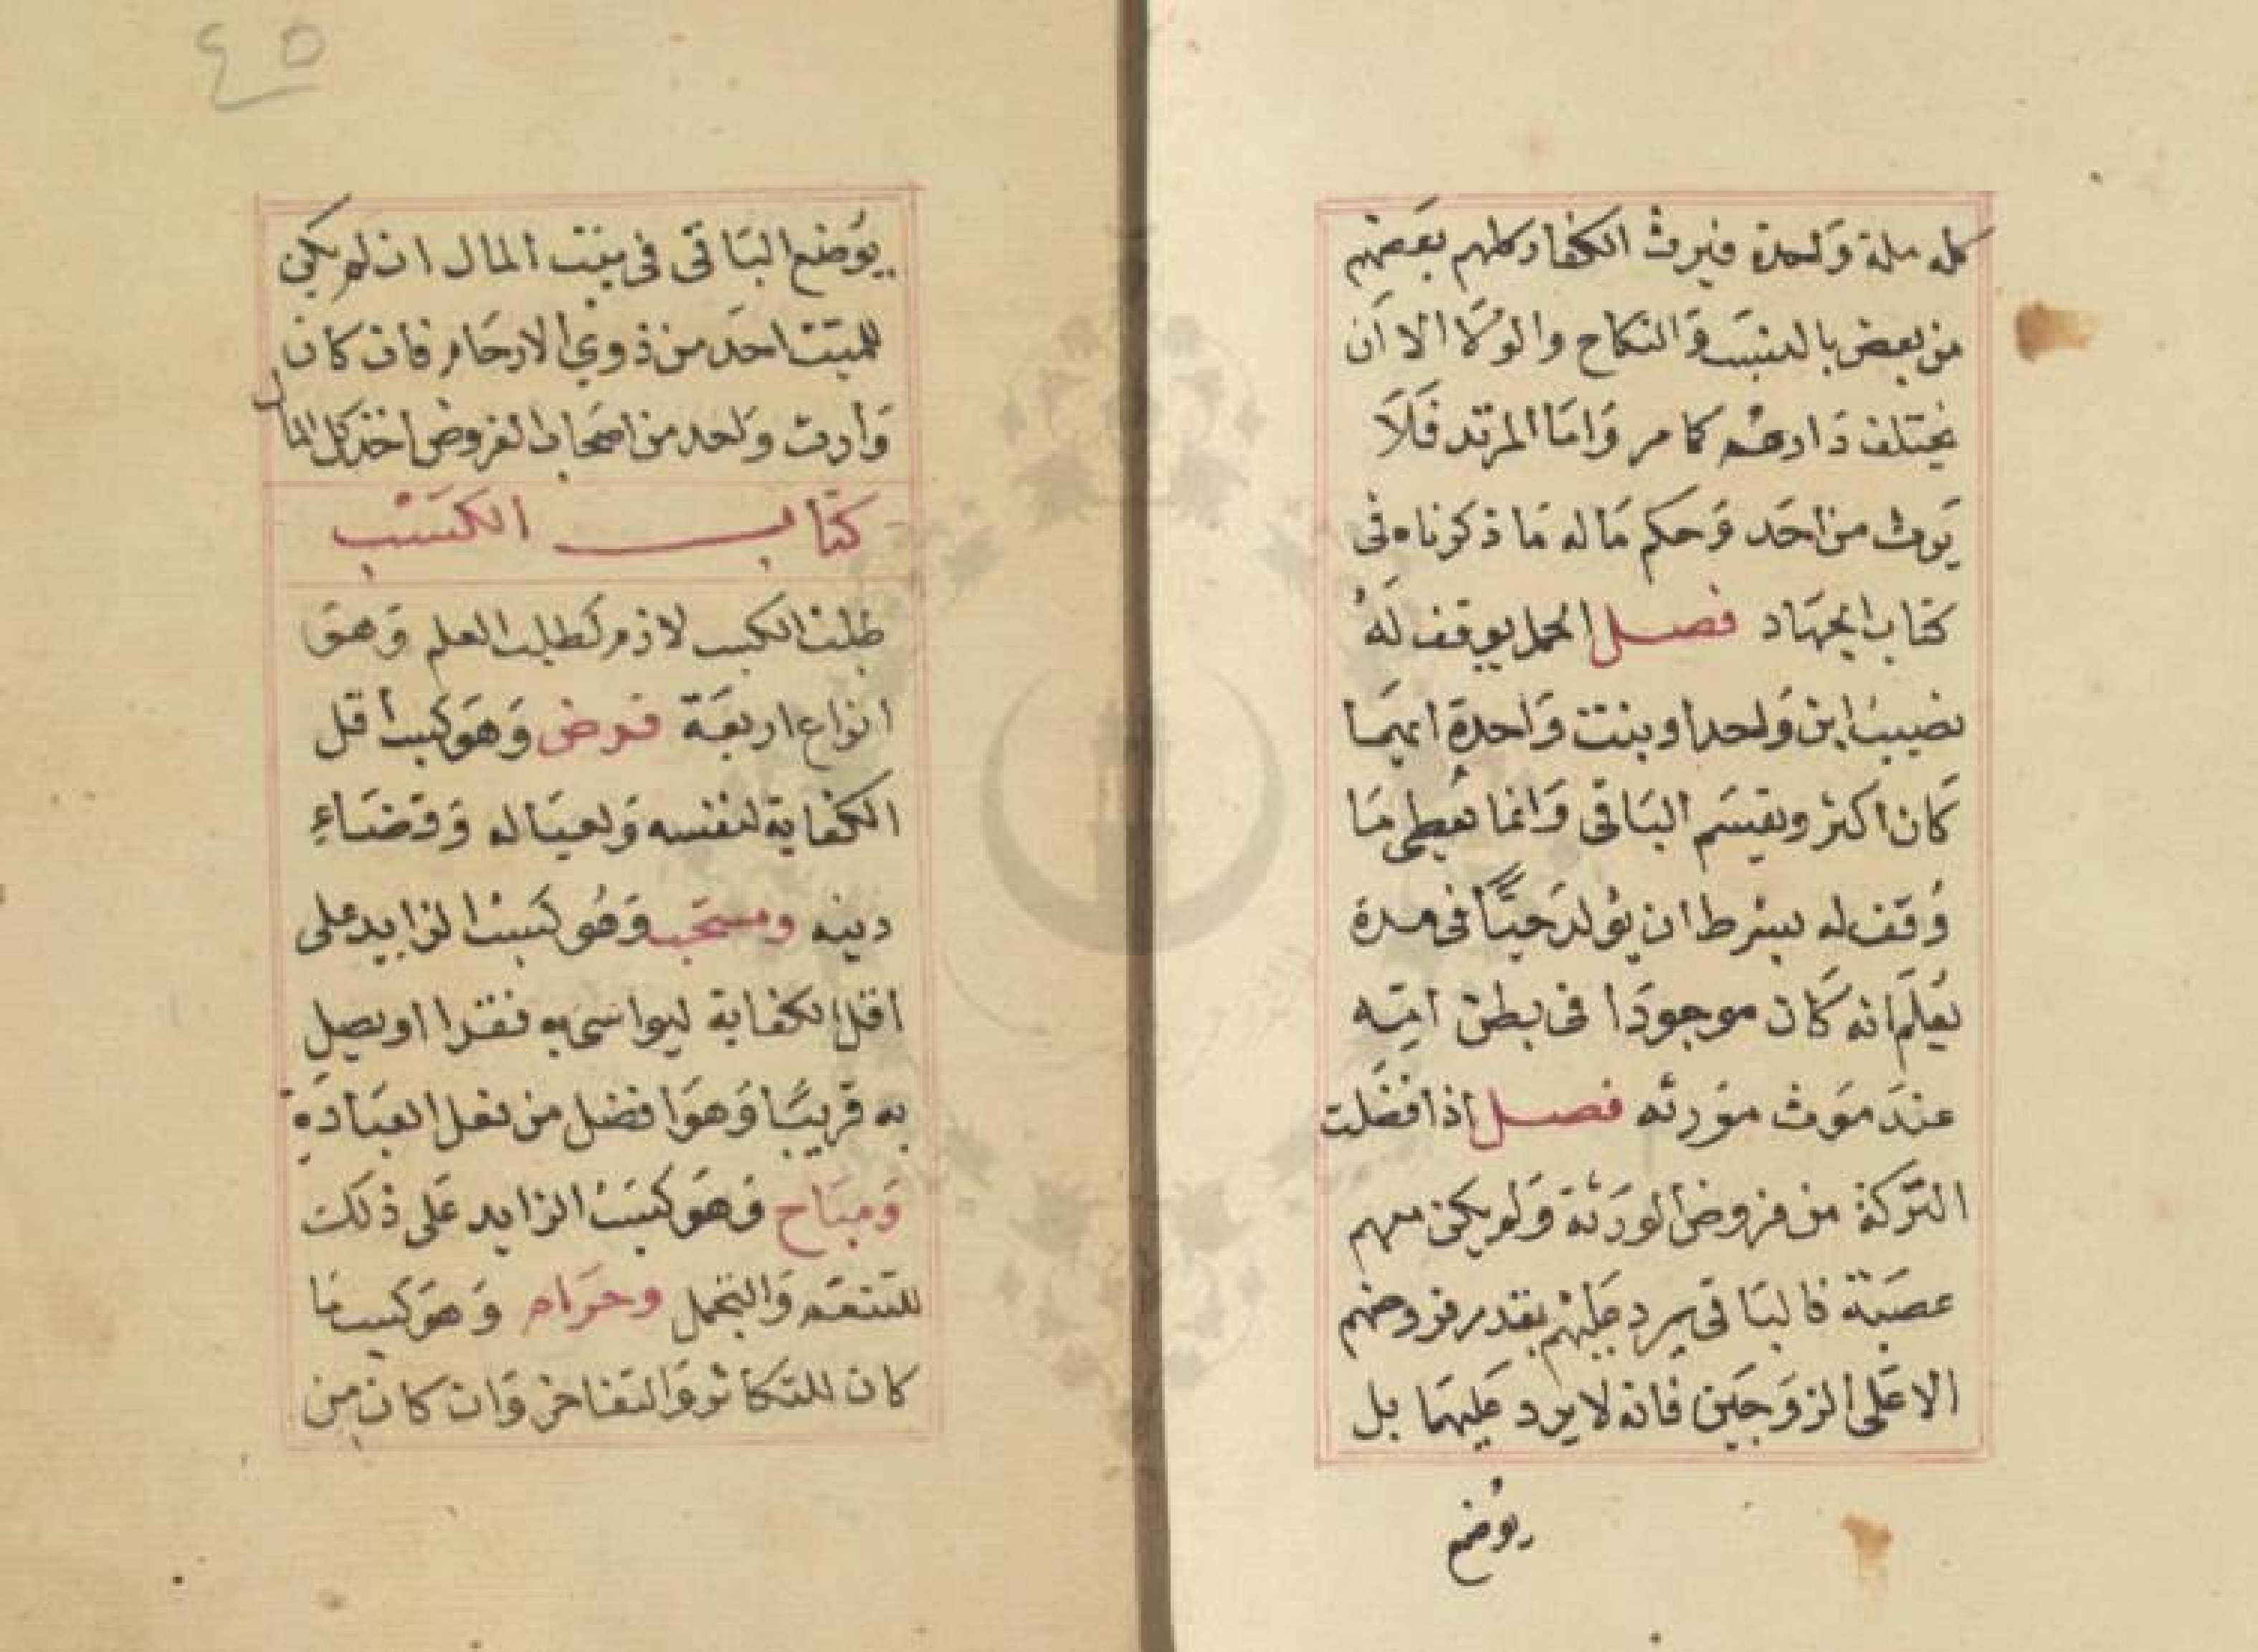 كله ملة وَاحدة فيرث الكفار كلهم بعَضهم
من بعض بالنسَب وَالنكاح والوَلَا الا اَن
يختلف دَارهم كما مر وَامَا المرتد فَلَا
يَرث من احَد وَحكم مَاله مَا ذكرناه في
كتاب الجهَاد فصل الحمل يوقف لَهُ
نصيب ابن وَاحد او بنت وَاحدة ايهمَا
كَان اكثر ويقسَم البَاقى وَانما يعُطى مَا
وُقف له بشرط ان يوُلدَ حيًّا في مدة
يُعلَم انه كَان موجودَا فى بطن امّه
عندَ مَوت موَرثه فصل اذا فضَلت
التَركة من فروض الورَثة وَلم يكن معهم
عصَبَة فالبَاقى يرد عَليهم بقدر فروضهم
الا عَلى الزوَجَين فَانه لا يرد عَليهمَا بل
يوُضع
٤٥
يوُضع البَاقى فى بيَت المال ان لم يكَن
للميَت احَد من ذوي الارحَام فان كان
وَارث وَاحد من اصحَاب الفروض اخذ كل المال
كتاب الكسَب
طلب الكسب لازم كَطلب العلم وَهوَ
انواع اربعَة فرض وَهوَ كسب أقل
الكفاية لنفسه وَلعيَاله وَقضَاءِ
دينه ومستحَب وَهُو كسَب الزايد على
اقل الكفاية ليواسىَ به فقيرا او يصل
به قريبًا وَهوَ افضل من نفل العبَادَة
وَمبَاح وَهوَ كسَب الزايد عَلى ذلَك
للتنعم وَالتجمل وحرَام وَهوَ كسب مَا
كان للتكاثر وَالتفاخر وَان كان من